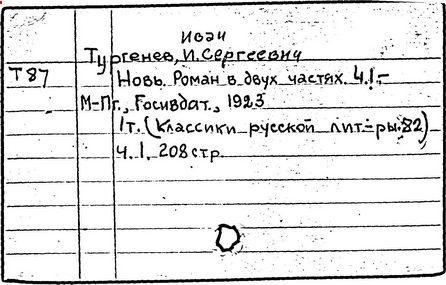 Иван
Тургенев, И. Сергеевич
Т 87
Новь. Роман в двух частях. Ч. I.-
М-Пг., Госиздат., 1923
1 т. (Классики русской лит-ры. 82)
Ч. I. 208 стр.